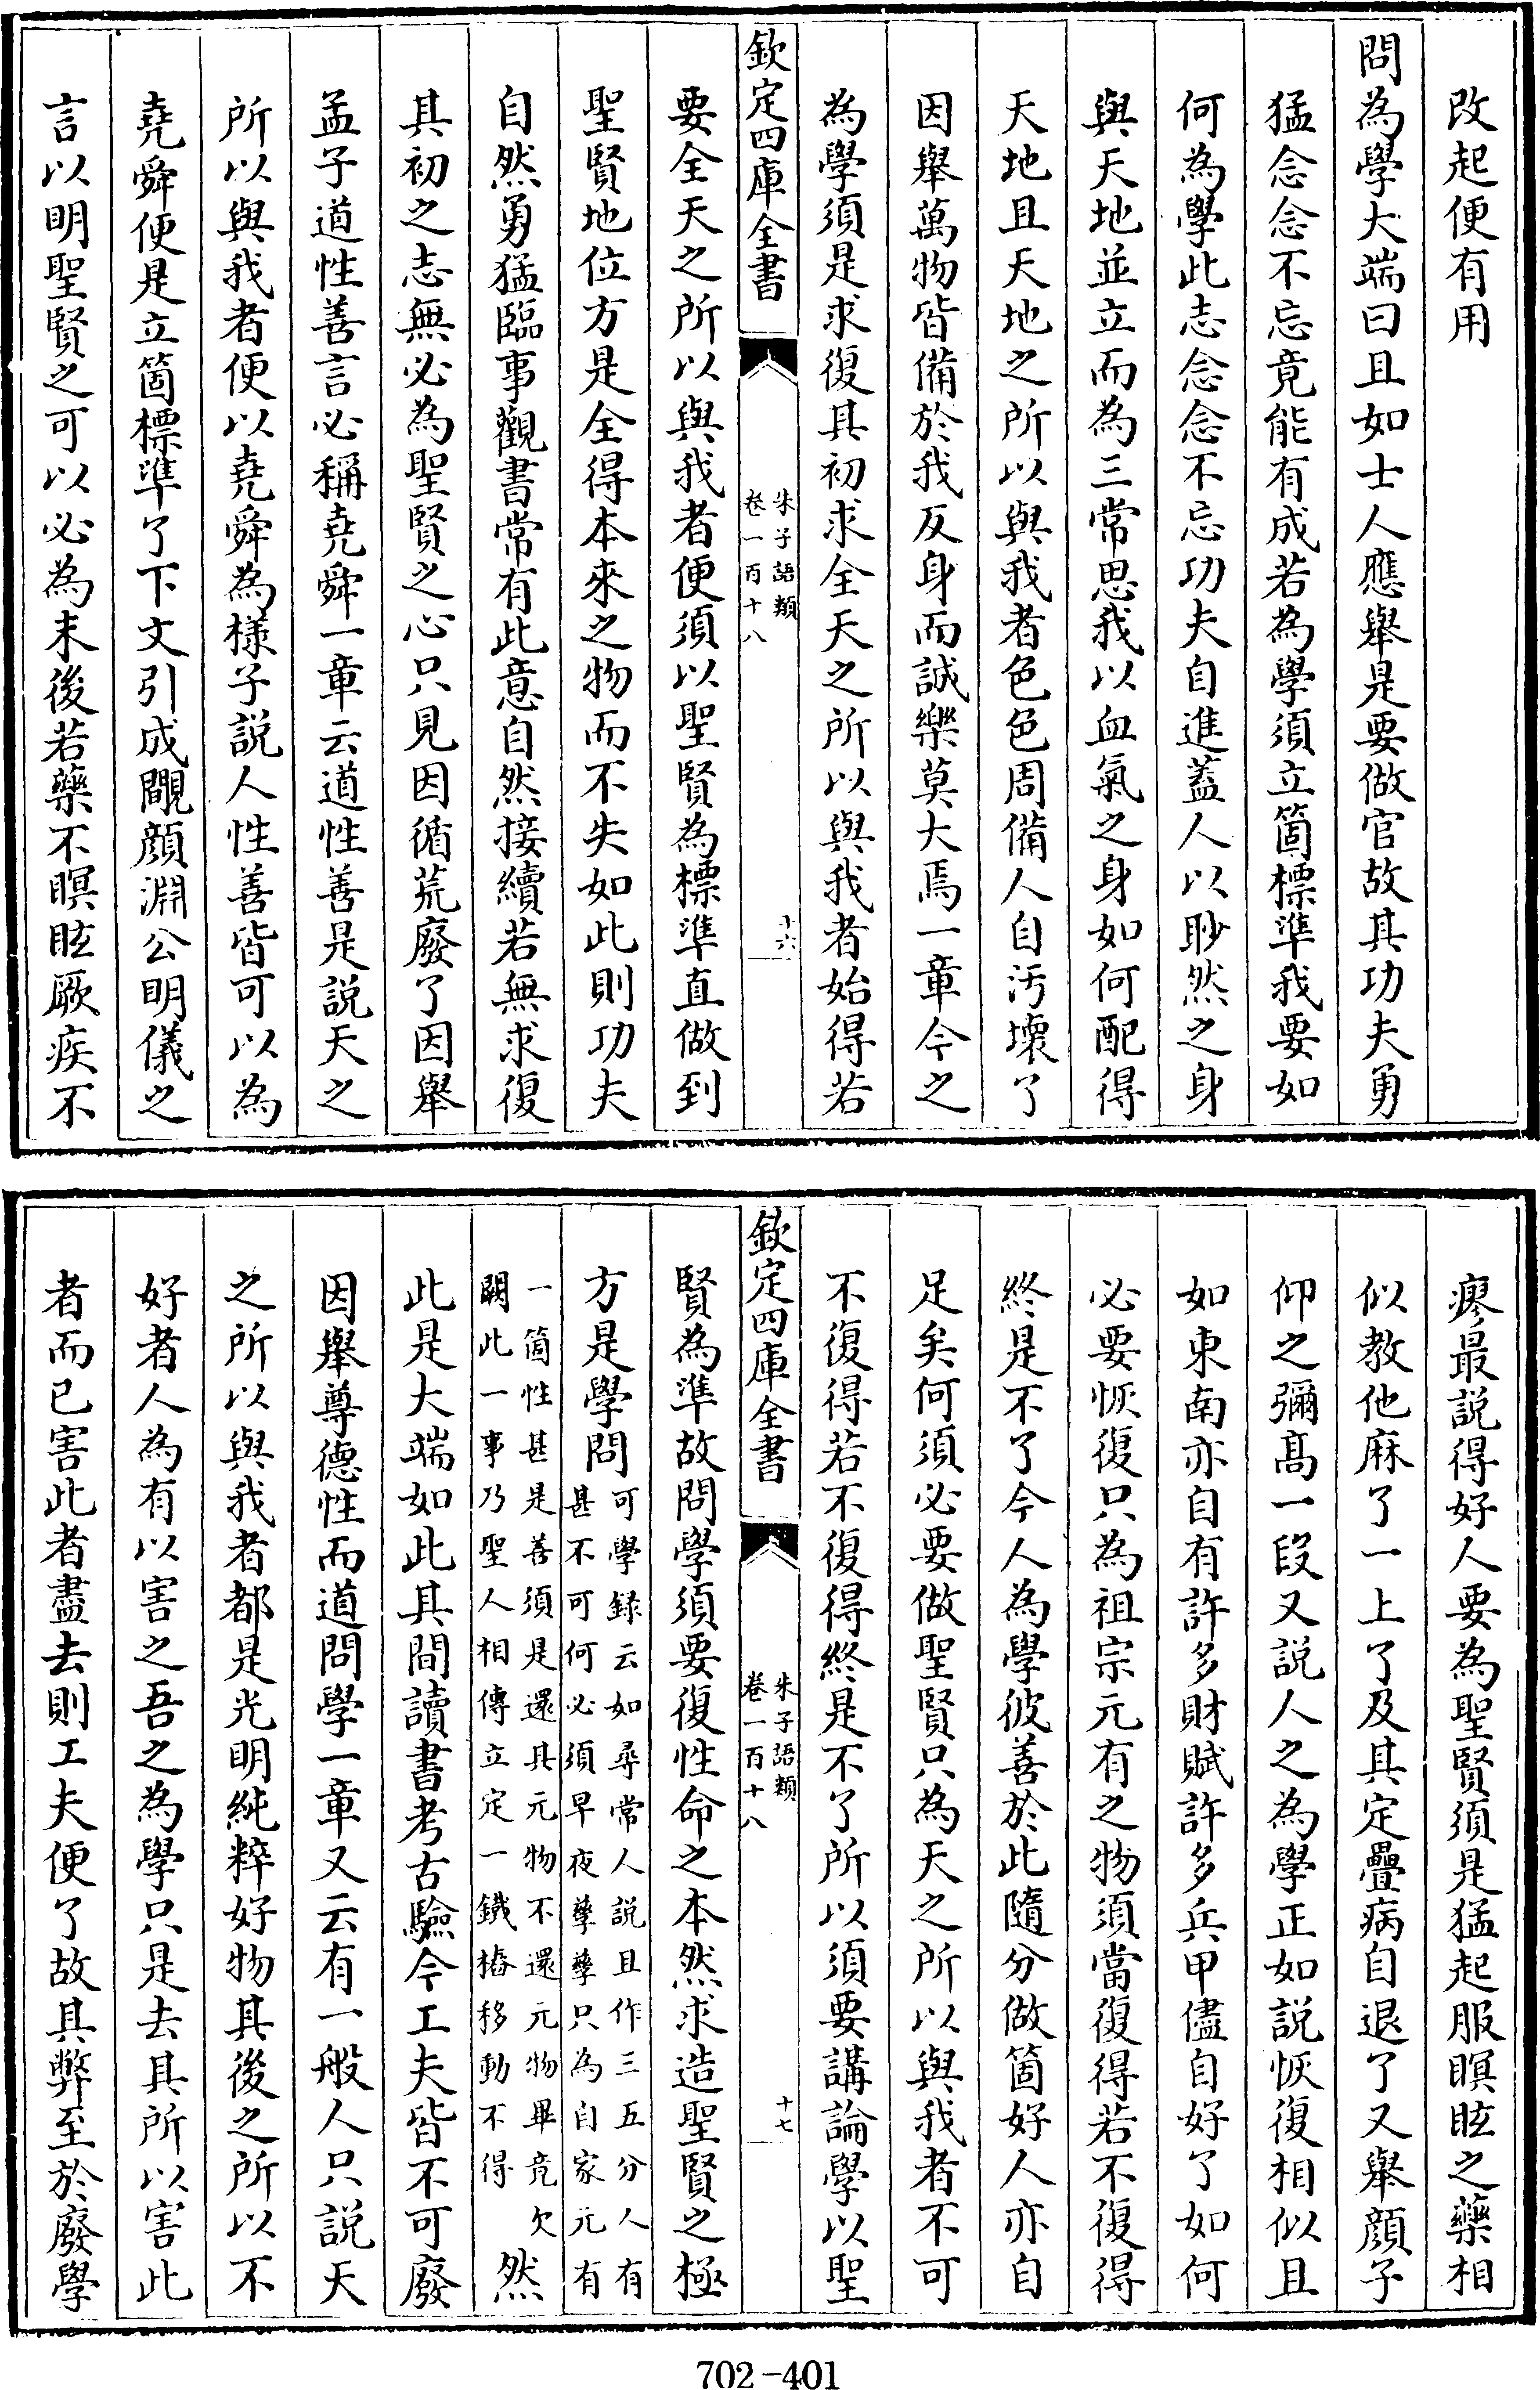 改起便有用
問為學大端曰且如士人應舉是要做官故其功夫勇
猛念念不忘竟能有成若為學須立箇標準我要如
何為學此志念念不忘功夫自進蓋人以眇然之身
與天地並立而為三常思我以血氣之身如何配得
天地且天地之所以與我者色色周備人自汚壞了
因舉萬物皆備於我反身而誠樂莫大焉一章今之
為學須是求復其初求全天之所以與我者始得若
欽定四庫全書
朱子語類
卷一百十八
十六
要全天之所以與我者便須以聖賢為標準直做到
聖賢地位方是全得本來之物而不失如此則功夫
自然勇猛臨事觀書常有此意自然接續若無求復
其初之志無必為聖賢之心只見因循荒廢了因舉
孟子道性善言必稱堯舜一章云道性善是説天之
所以與我者便以堯舜為樣子説人性善皆可以為
堯舜便是立箇標準了下文引成覸顔淵公明儀之
言以明聖賢之可以必為末後若藥不瞑眩厥疾不
瘳最説得好人要為聖賢須是猛起服瞑眩之藥相
似教他麻了一上了及其定疊病自退了又舉顔子
仰之彌髙一段又説人之為學正如説恢復相似且
如東南亦自有許多財賦許多兵甲儘自好了如何
必要恢復只為祖宗元有之物須當復得若不復得
終是不了今人為學彼善於此隨分做箇好人亦自
足矣何須必要做聖賢只為天之所以與我者不可
不復得若不復得終是不了所以須要講論學以聖
欽定四庫全書
朱子語類
卷一百十八
十七
賢為準故問學須要復性命之本然求造聖賢之極
方是學問可學録云如尋常人説且作三五分人有
甚不可何必須早夜孳孳只為自家元有
一箇性甚是善須是還其元物不還元物畢竟欠
闕此一事乃聖人相傳立定一鐵樁移動不得然
此是大端如此其間讀書考古驗今工夫皆不可廢
因舉尊德性而道問學一章又云有一般人只説天
之所以與我者都是光明純粹好物其後之所以不
好者人為有以害之吾之為學只是去其所以害此
者而已害此者盡去則工夫便了故其弊至於廢學
702-401